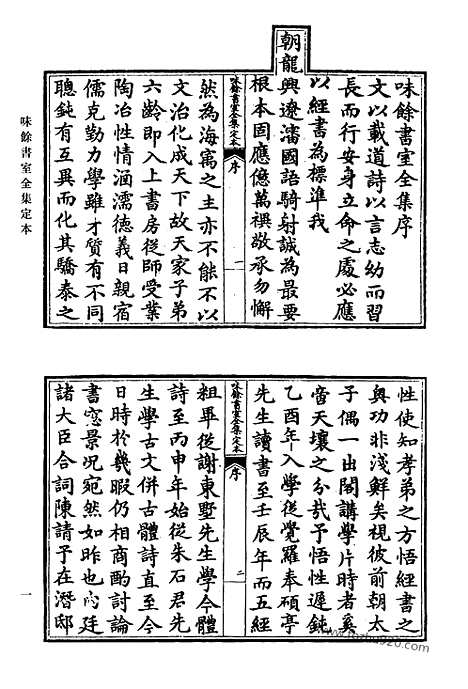 味餘書室全集序
文以載道詩以言志幼而習
長而行安身立命之處必應
以經書為標準我
朝龍興遼瀋國語騎射誠為最要
根本固應億萬禩敬承勿懈
味餘書室全集定本 序 一
然為海寓之主亦不能不以
文治化成天下故天家子弟
六齡即入上書房從師受業
陶冶性情涵濡德義日親宿
儒克勤力學雖才質有不同
聰鈍有互異而化其驕泰之
性使知孝弟之方悟經書之
奧功非淺鮮矣視彼前朝太
子偶一出閣講學片時者奚
啻天壤之分哉予悟性遲鈍
乙酉年入學從覺羅奉碩亭
先生讀書至壬辰年而五經
味餘書室全集定本 序 二
粗畢從謝東墅先生學今體
詩至丙申年始從朱石君先
生學古文併古體詩直至今
日時於幾暇仍相商酌討論
書窓景況宛然如昨也內廷
諸大臣合詞陳請予在潛邸
味餘書室全集定本
一